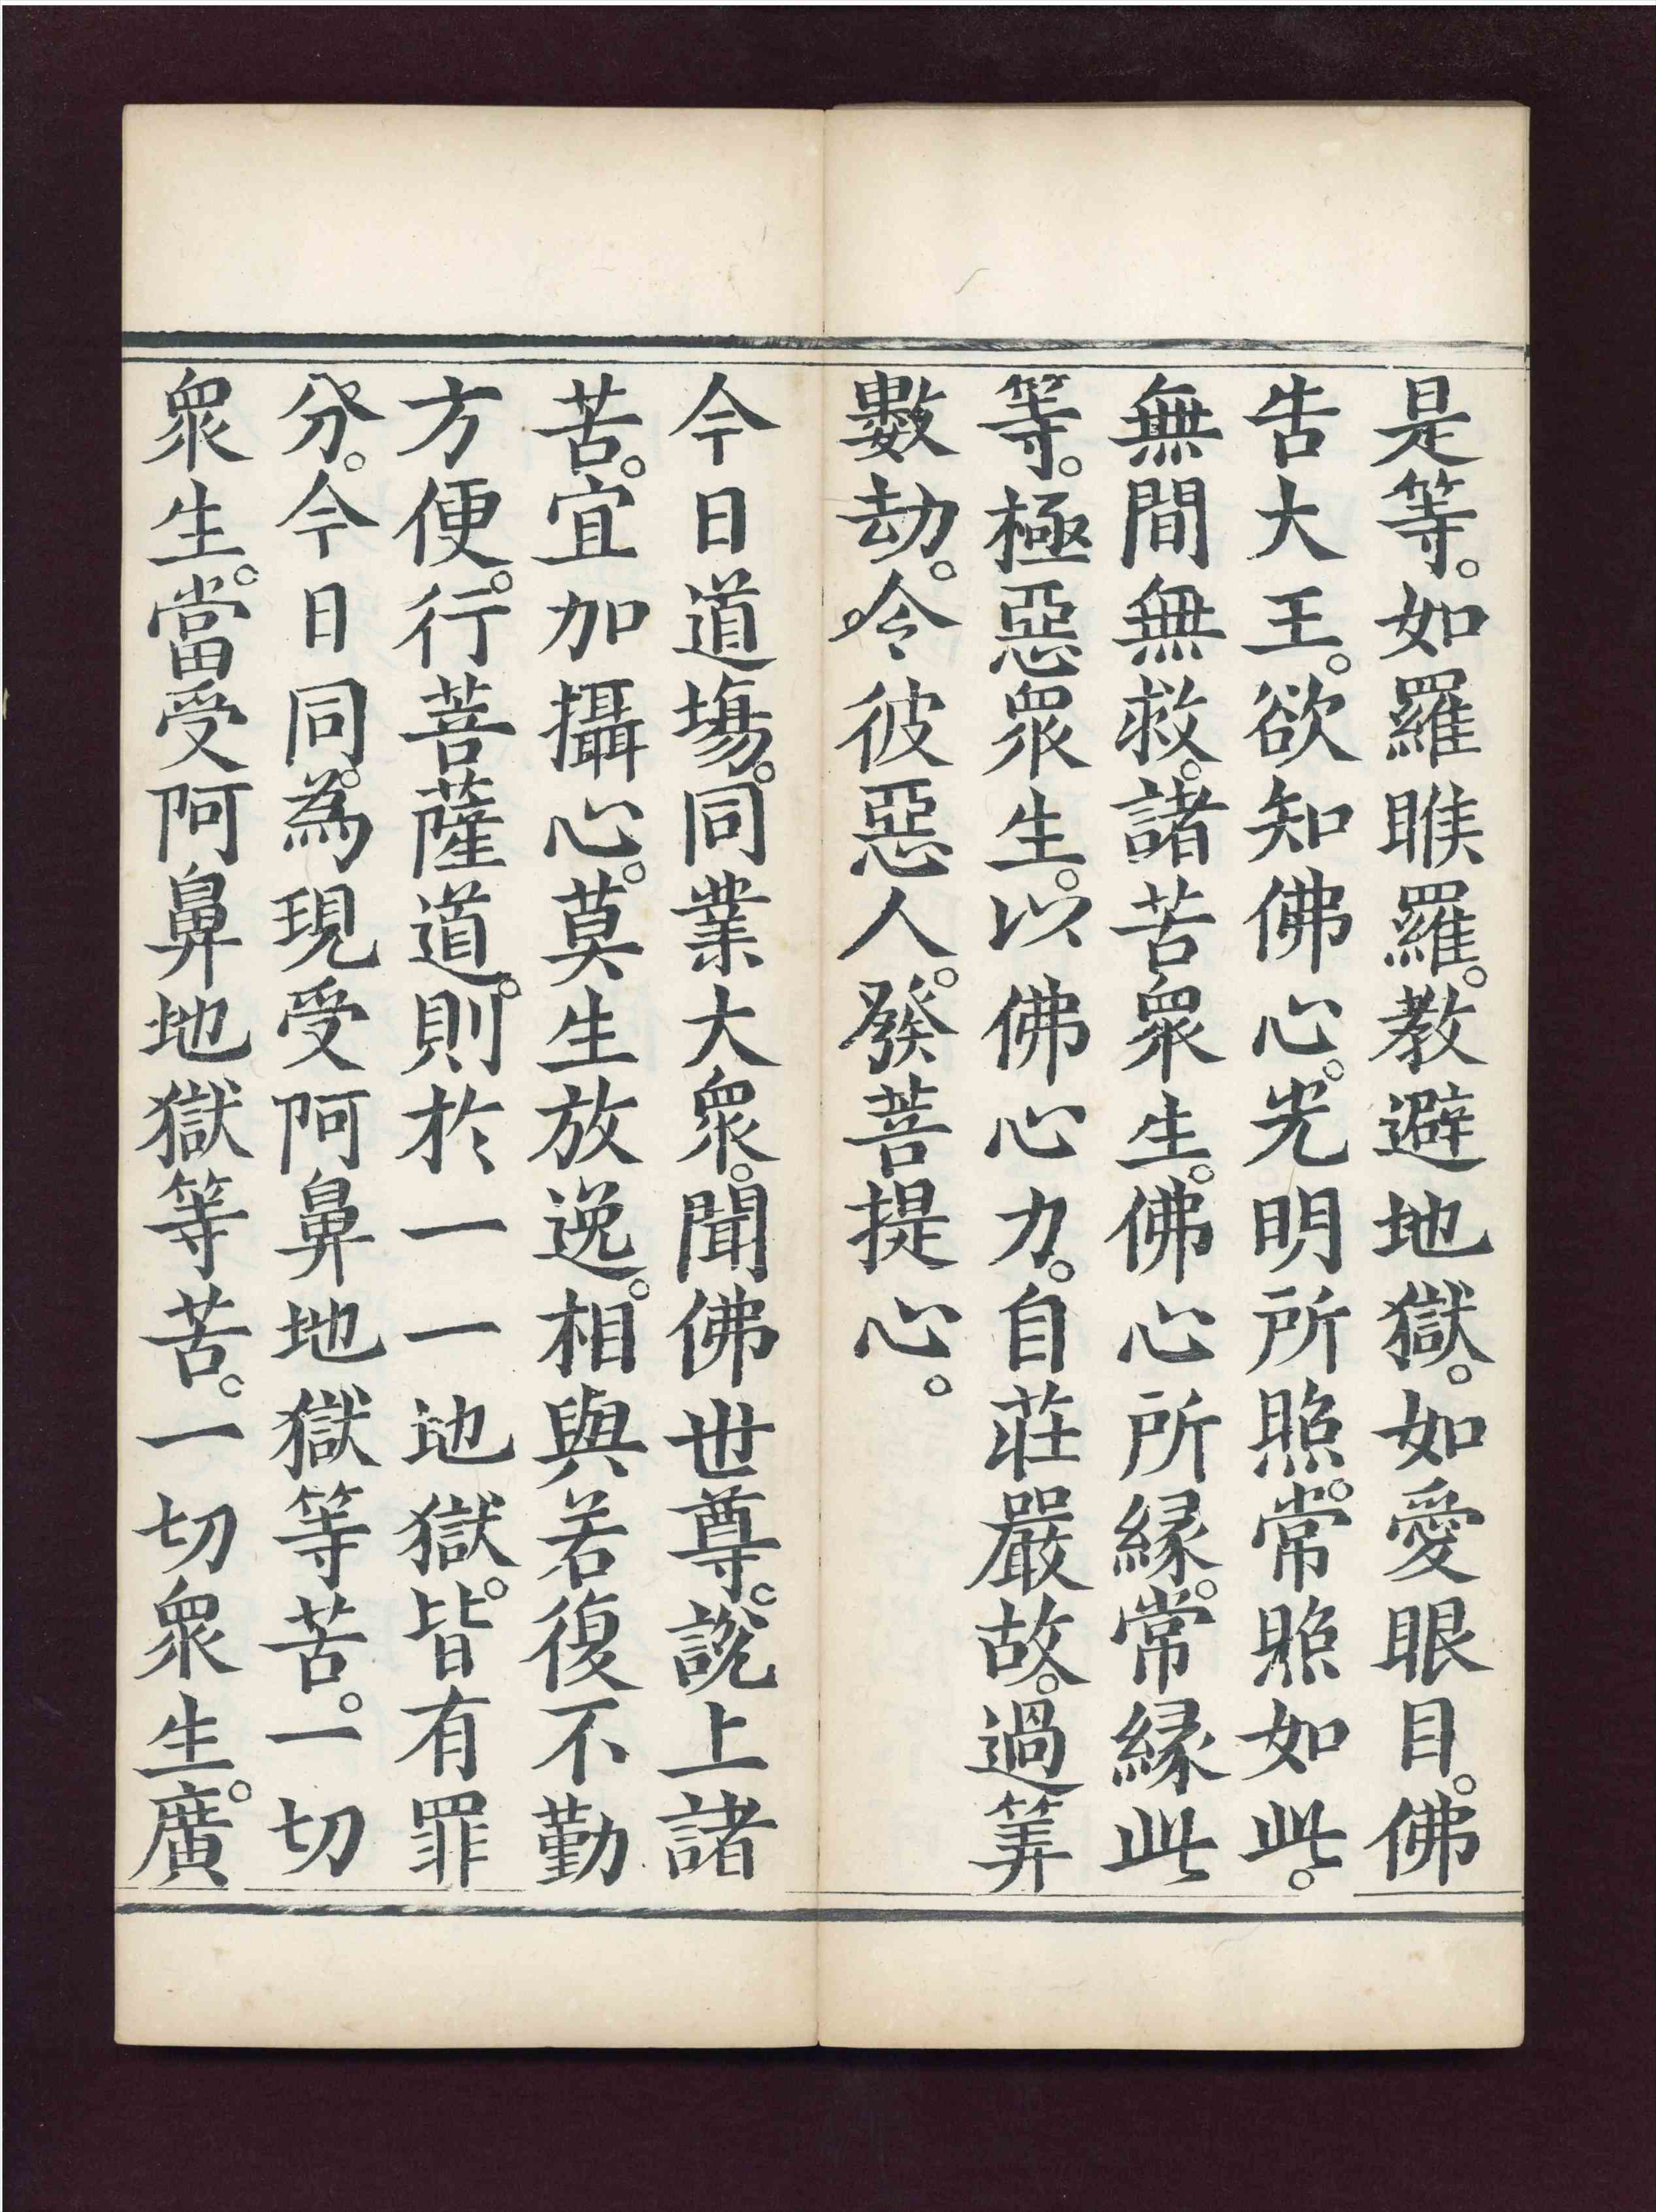 是等。如羅睺羅。教避地獄。如愛眼目。佛
告大王。欲知佛心。光明所照。常照如此。
無間無救。諸苦眾生。佛心所緣。常緣此
等。極惡眾生。以佛心力。自莊嚴故。過筭
數劫。令彼惡人。發菩提心。
今日道場。同業大眾。聞佛世尊。說上諸
苦。宜加攝心。莫生放逸。相與若復不勤
方便。行菩薩道。則於一一地獄。皆有罪
分。今日同。為現受阿鼻地獄等苦。一切
眾生。當受阿鼻地獄等苦。一切眾生。廣